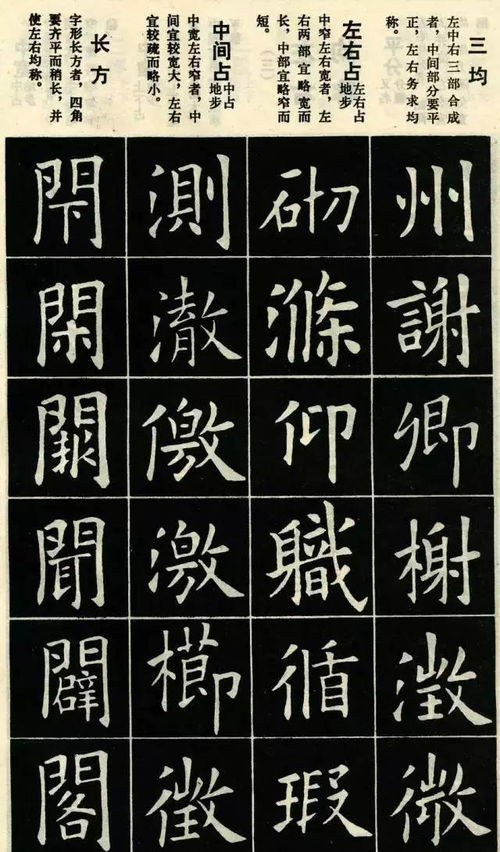 三均
左中右三部合成
者，中间部分要平
正，左右务求均
称。
左右占
左右占
地步
中窄左右宽者，左
右两部宜略宽而
长，中部宜略窄而
短。
中间占
中占
地步
中宽左右窄者，中
间宜较宽大，左右
宜较疏而略小。
长方
字形长方者，四角
要齐平而稍长，并
使左右均称。
州謝卿榭澂微
砌滌仰職循瑕
測澈儌激櫛徵
閑聞闢閣